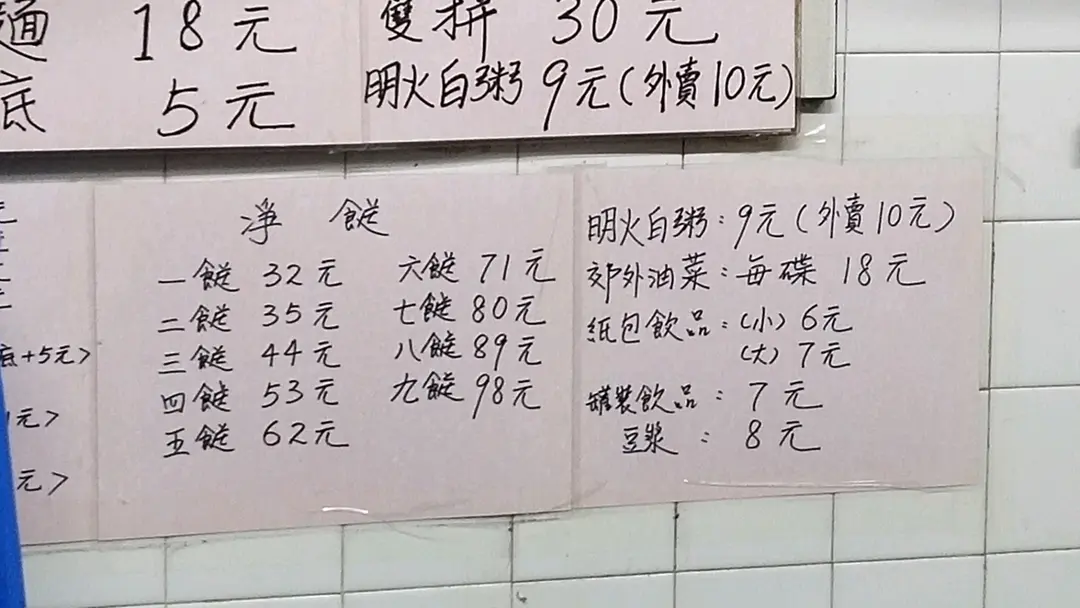 麵 18元
底 5元
雙拼 30元
明火白粥 9元(外賣10元)
底+5元>
元>
元>
凈 餸
一餸 32元
二餸 35元
三餸 44元
四餸 53元
五餸 62元
六餸 71元
七餸 80元
八餸 89元
九餸 98元
明火白粥：9元(外賣10元)
郊外油菜：每碟 18元
紙包飲品：(小) 6元
(大) 7元
罐裝飲品：7元
豆漿：8元